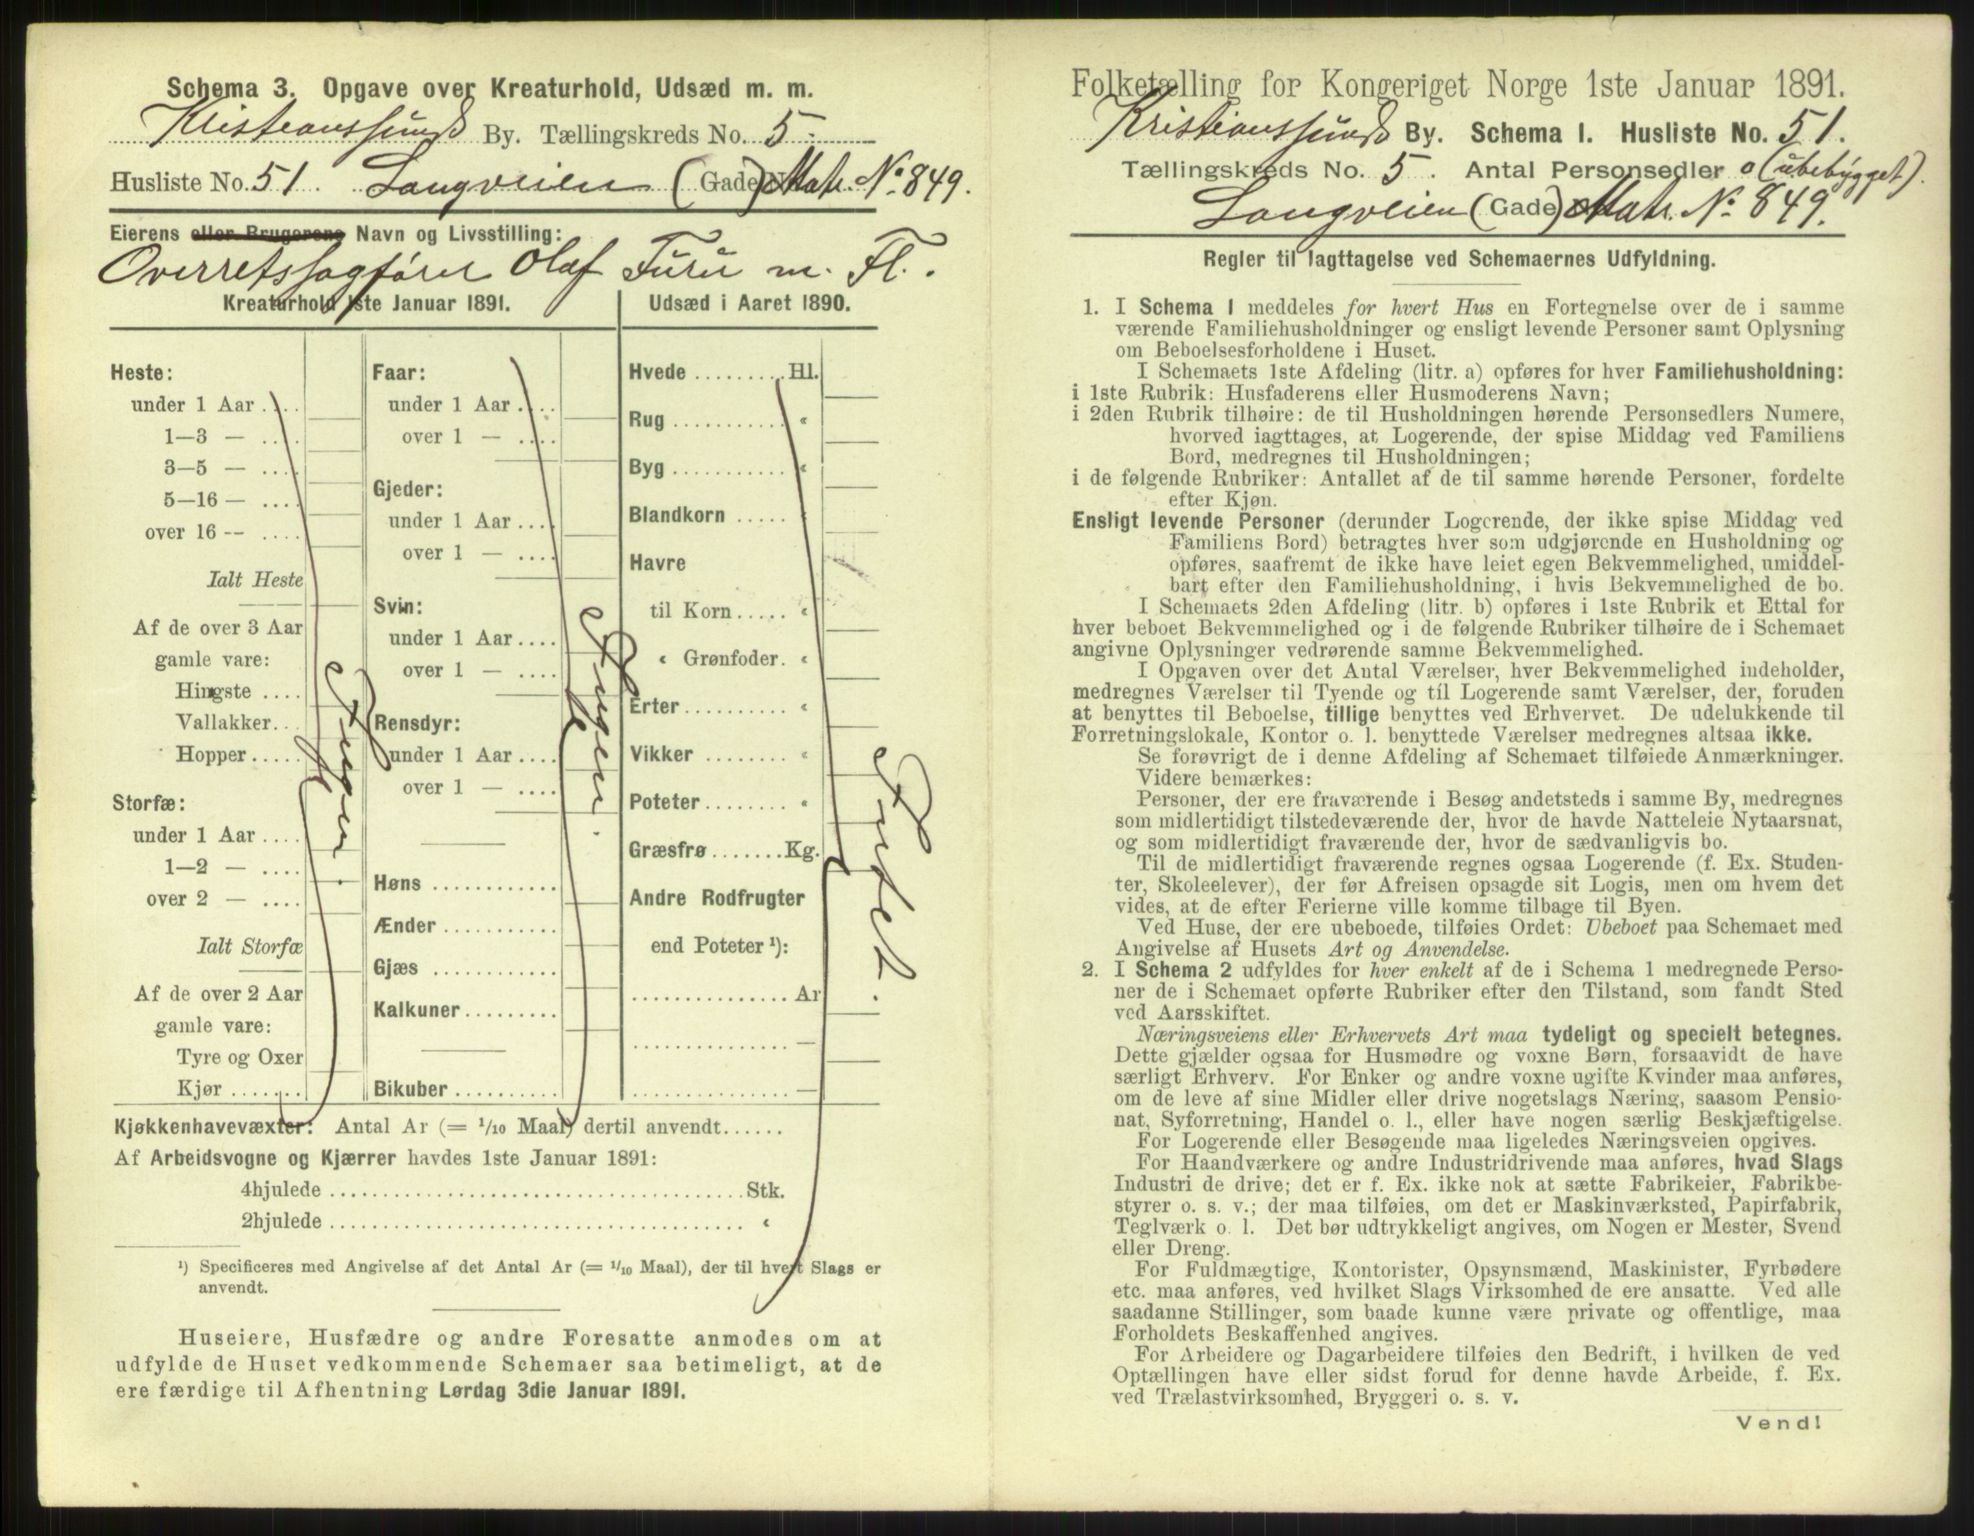 Schema 3. Opgave over Kreaturhold, Udsæd m. m.
Kristianssunds By. Tællingskreds No. 5.
Husliste No. 51. Langveien (Gade) Matr. No. 849.
Eierens eller Brugerens Navn og Livsstilling:
Overretssagfører Olaf Furu m. Fl.
Kreaturhold 1ste Januar 1891.
Heste:
under 1 Aar ....
1—3 — ....
3—5 — ....
5—16 — ....
over 16 -- ....
Ialt Heste
Af de over 3 Aar
gamle vare:
Hingste ....
Vallakker...
Hopper.....
Storfæ:
under 1 Aar ....
1—2 — ....
over 2 — ....
Ialt Storfæ
Af de over 2 Aar
gamle vare:
Tyre og Oxer
Kjør .......
Ingen.
Faar:
under 1 Aar ....
over 1 — ....
Gjeder:
under 1 Aar ....
over 1 — ....
Svin:
under 1 Aar ....
over 1 — ....
Rensdyr:
under 1 Aar ....
over 1 — ....
Høns ............
Ænder ...........
Gjæs ............
Kalkuner.........
Bikuber ..........
Ingen.
Udsæd i Aaret 1890.
Hvede ........Hl.
Rug ........... «
Byg ........... «
Blandkorn ..... «
Havre
til Korn ..... «
« Grønfoder. «
Erter .......... «
Vikker ......... «
Poteter ........ «
Græsfrø .......Kg.
Andre Rodfrugter
end Poteter ¹):
............... Ar
............... —
............... —
Intet.
Kjøkkenhavevæxter: Antal Ar (= 1/10 Maal) dertil anvendt......
Af Arbeidsvogne og Kjærrer havdes 1ste Januar 1891:
4hjulede ........................................Stk.
2hjulede ........................................ «
¹) Specificeres med Angivelse af det Antal Ar (= 1/10 Maal), der til hvert Slags er
anvendt.
Huseiere, Husfædre og andre Foresatte anmodes om at
udfylde de Huset vedkommende Schemaer saa betimeligt, at de
ere færdige til Afhentning Lørdag 3die Januar 1891.
Folketælling for Kongeriget Norge 1ste Januar 1891.
Kristianssunds By. Schema 1. Husliste No. 51.
Tællingskreds No. 5. Antal Personsedler 0 (ubebygget).
Langveien (Gade) Matr. No. 849.
Regler til Iagttagelse ved Schemaernes Udfyldning.
1. I Schema 1 meddeles for hvert Hus en Fortegnelse over de i samme
værende Familiehusholdninger og ensligt levende Personer samt Oplysning
om Beboelsesforholdene i Huset.
I Schemaets 1ste Afdeling (litr. a) opføres for hver Familiehusholdning:
i 1ste Rubrik: Husfaderens eller Husmoderens Navn;
i 2den Rubrik tilhøire: de til Husholdningen hørende Personsedlers Numere,
hvorved iagttages, at Logerende, der spise Middag ved Familiens
Bord, medregnes til Husholdningen;
i de følgende Rubriker: Antallet af de til samme hørende Personer, fordelte
efter Kjøn.
Ensligt levende Personer (derunder Logerende, der ikke spise Middag ved
Familiens Bord) betragtes hver som udgjørende en Husholdning og
opføres, saafremt de ikke have leiet egen Bekvemmelighed, umiddel-
bart efter den Familiehusholdning, i hvis Bekvemmelighed de bo.
I Schemaets 2den Afdeling (litr. b) opføres i 1ste Rubrik et Ettal for
hver beboet Bekvemmelighed og i de følgende Rubriker tilhøire de i Schemaet
angivne Oplysninger vedrørende samme Bekvemmelighed.
I Opgaven over det Antal Værelser, hver Bekvemmelighed indeholder,
medregnes Værelser til Tyende og til Logerende samt Værelser, der, foruden
at benyttes til Beboelse, tillige benyttes ved Erhvervet. De udelukkende til
Forretningslokale, Kontor o. l. benyttede Værelser medregnes altsaa ikke.
Se forøvrigt de i denne Afdeling af Schemaet tilføiede Anmærkninger.
Videre bemærkes:
Personer, der ere fraværende i Besøg andetsteds i samme By, medregnes
som midlertidigt tilstedeværende der, hvor de havde Natteleie Nytaarsnat,
og som midlertidigt fraværende der, hvor de sædvanligvis bo.
Til de midlertidigt fraværende regnes ogsaa Logerende (f. Ex. Studen-
ter, Skoleelever), der før Afreisen opsagde sit Logis, men om hvem det
vides, at de efter Ferierne ville komme tilbage til Byen.
Ved Huse, der ere ubeboede, tilføies Ordet: Ubeboet paa Schemaet med
Angivelse af Husets Art og Anvendelse.
2. I Schema 2 udfyldes for hver enkelt af de i Schema 1 medregnede Perso-
ner de i Schemaet opførte Rubriker efter den Tilstand, som fandt Sted
ved Aarsskiftet.
Næringsveiens eller Erhvervets Art maa tydeligt og specielt betegnes.
Dette gjælder ogsaa for Husmødre og voxne Børn, forsaavidt de have
særligt Erhverv. For Enker og andre voxne ugifte Kvinder maa anføres,
om de leve af sine Midler eller drive nogetslags Næring, saasom Pensio-
nat, Syforretning, Handel o. l., eller have nogen særlig Beskjæftigelse.
For Logerende eller Besøgende maa ligeledes Næringsveien opgives.
For Haandværkere og andre Industridrivende maa anføres, hvad Slags
Industri de drive; det er f. Ex. ikke nok at sætte Fabrikeier, Fabrikbe-
styrer o. s. v.; der maa tilføies, om det er Maskinværksted, Papirfabrik,
Teglværk o. l. Det bør udtrykkeligt angives, om Nogen er Mester, Svend
eller Dreng.
For Fuldmægtige, Kontorister, Opsynsmænd, Maskinister, Fyrbødere
etc. maa anføres, ved hvilket Slags Virksomhed de ere ansatte. Ved alle
saadanne Stillinger, som baade kunne være private og offentlige, maa
Forholdets Beskaffenhed angives.
For Arbeidere og Dagarbeidere tilføies den Bedrift, i hvilken de ved
Optællingen have eller sidst forud for denne havde Arbeide, f. Ex.
ved Trælastvirksomhed, Bryggeri o. s. v.
Vend!